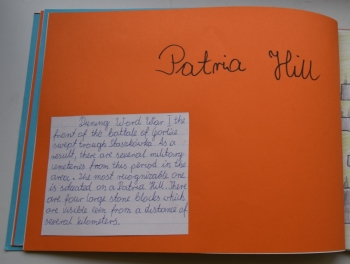 Patria Hill
During Word War I the
front of the battale of Gorlice
swept trough Staszkówka. As a
result, there are several military
cemeteries from this period in the
area. The most recognizable one
is situated on a Patria Hill. There
are four large stone blocks which
are visible even from a distance of
several kilometers.